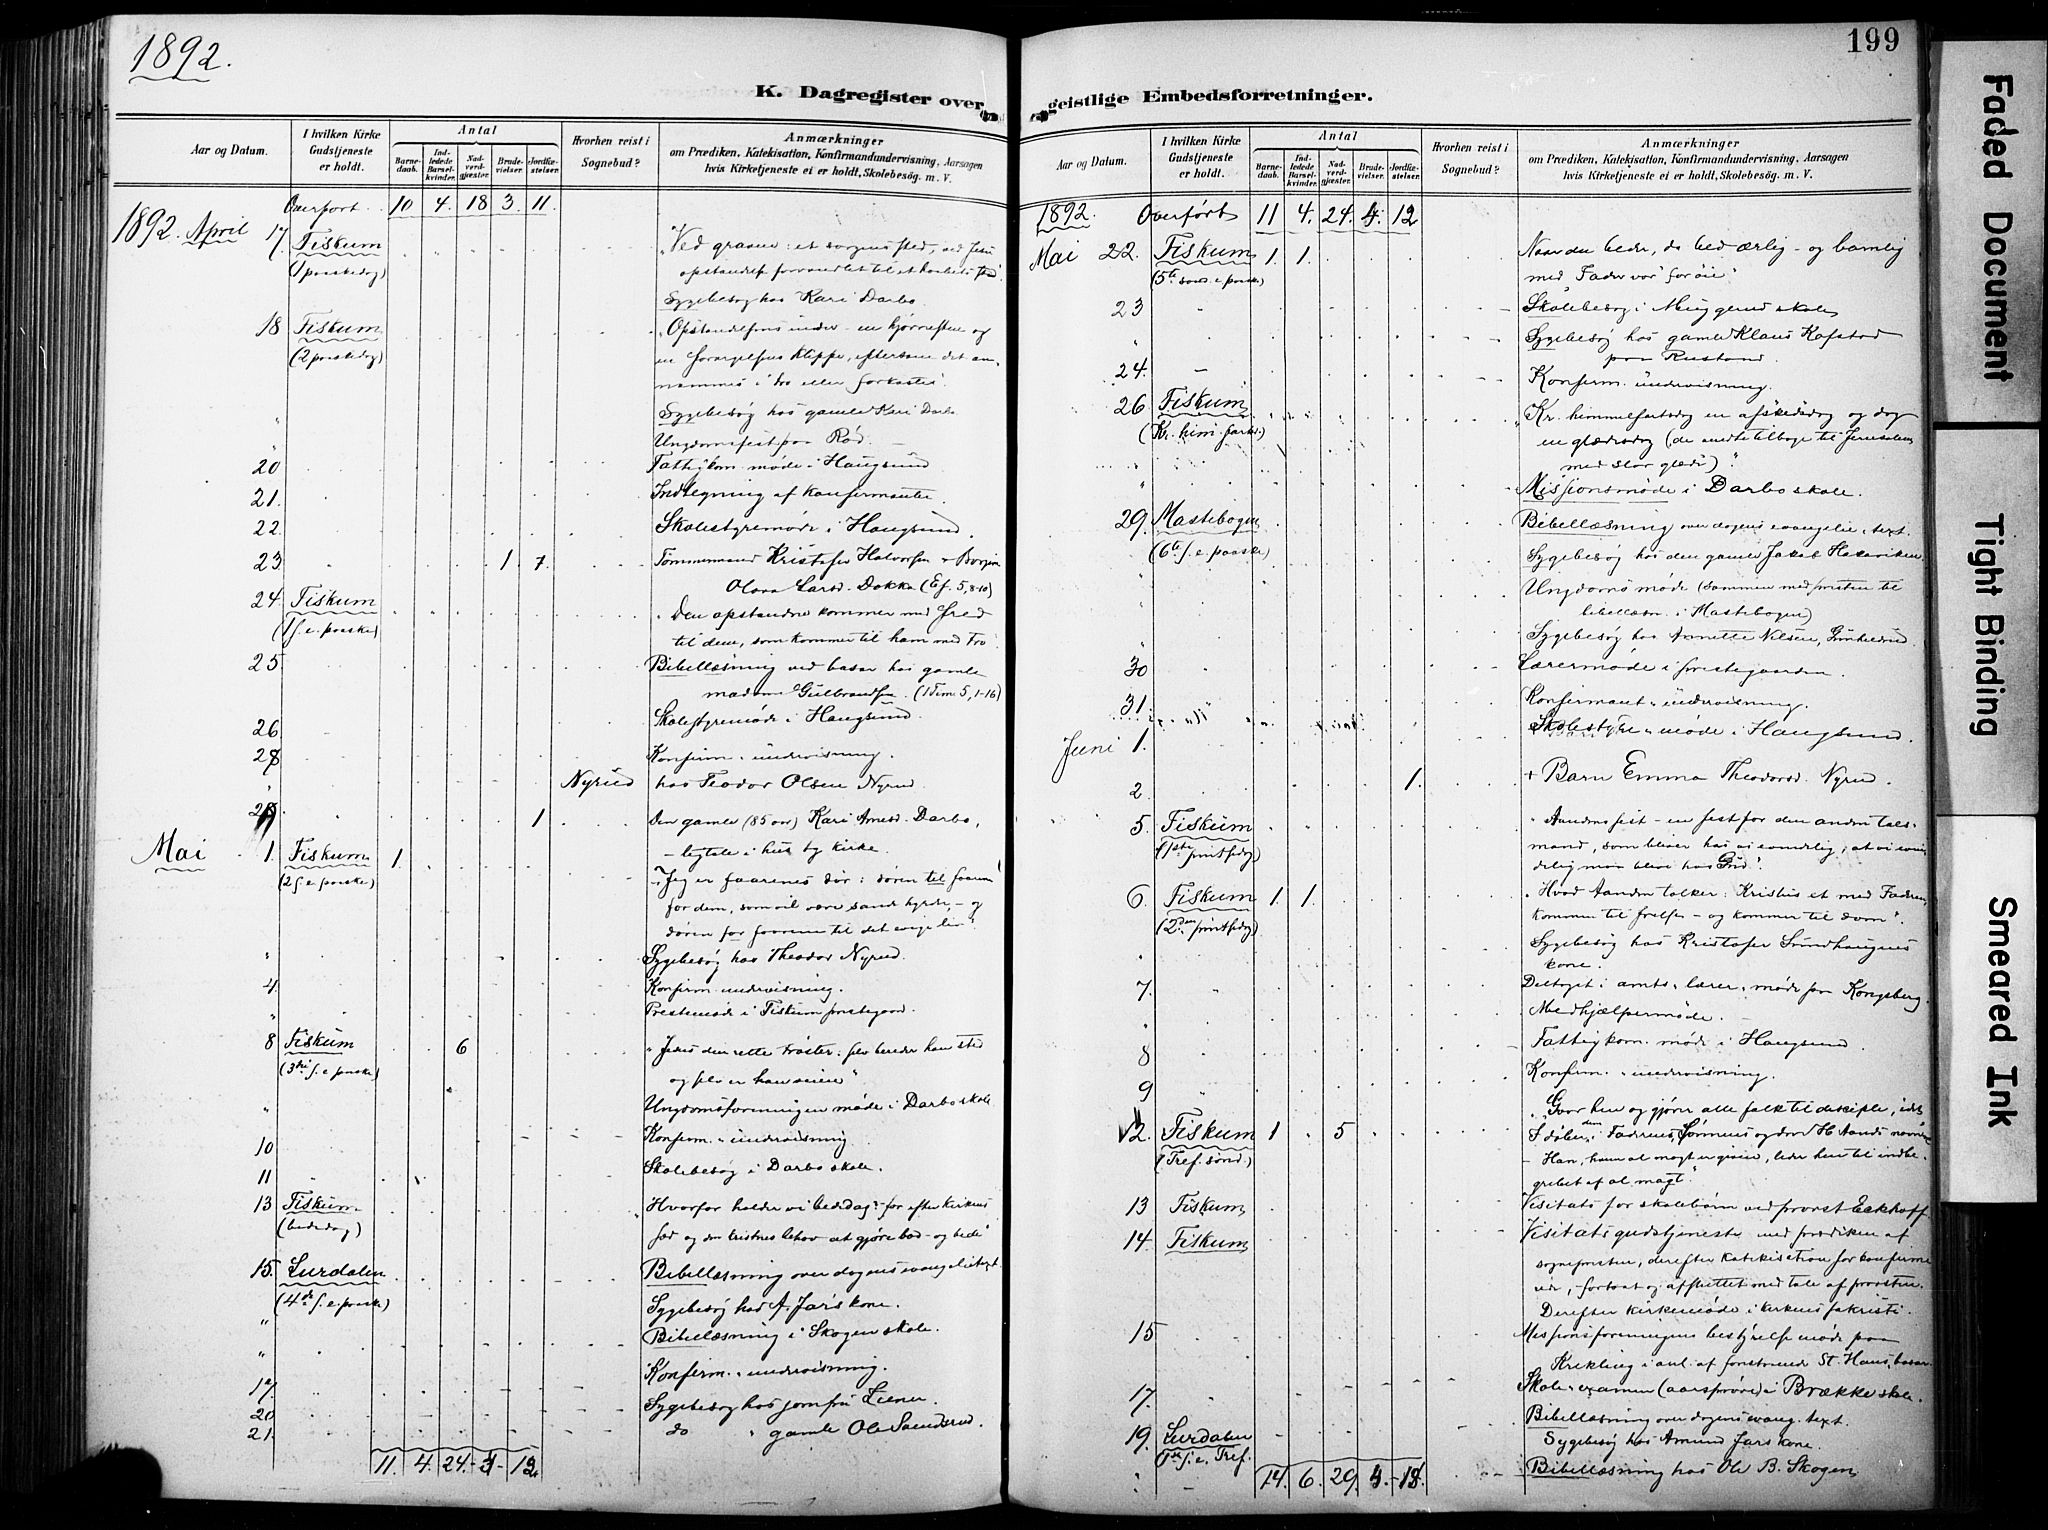 1892.
K. Dagregister over
Aar og Datum.
I hvilken Kirke Gudstjeneste er holdt.
Antal
Barnedaab.
Indledede Barselkvinder.
Nadverdgjæster.
Brudevielser.
Jordfæstelser.
Hvorhen reist i Sognebud?
Anmærkninger
om Prædiken, Katekisation, Konfirmandundervisning, Aarsagen
hvis Kirketjeneste ei er holdt, Skolebesøg. m. V.
Overført 10 4. 18 3. 11.
1892. April 17. Fiskum "Ved graven: et sorgens sted, ved Jesu
(1 paaskedag) opstandelse forvandlet til et haabets sted".
Sygebesøg hos Kari Darbo.
18 Fiskum "Opstandelsens under - en hjørnesten og
(2 paaskedag) en forargelsens klippe, eftersom det an-
nammes i tro eller forkastes".
" Sygebesøg hos gamle Kari Darbo
Ungdomsfest paa Rød.
20 Fattigkom. møde i Haugsund
21. Indtegning af konfirmanter.
22. Skolestyremøde i Haugsund.
23 1 7. Tømmermand Kristofer Halvorsen +
Olava Larsd. Dokka (Ef. 5, 8-10)
24. Fiskum "Den opstandne kommer med fred
(1 s. e. paaske) til dem, som kommer til ham med tro".
25 Bibellæsning ved basar hos gamle
madam Gulbrandsen. (1 Tim. 5, 1-16)
26 Skolestyremøde i Haugsund.
28 Konfirm. undervisning.
" Nyrud hos Teodor Olsen Nyrud.
1 Den gamle (85 aar) Kari Amesd. Darbo,
- ligtale i hus og kirke.
Mai 1. Fiskum 1. "Jeg er faarenes dør: døren til faarene
(2 s. e. paaske) for dem, som vil være sande hyrder, - og
døren for faarene til det evige liv".
" Sygebesøg hos Theodor Nyrud.
4. Konfirm. undervisning.
" Prestemøde i Fiskum prestegaard.
8 Fiskum 6 "Jesus den rette trøster: selv bereder han sted
(3die s. e. paaske) og selv er han veien"
" Ungdomsforeningen møde i Darbo skole
10 Konfirm. undervisning
11 Skolebesøg i Darbo skole.
13 Fiskum "Hvorfor holder vi bededag? - for efter kirkens
(bededag) sæd og den kristnes behov at gjøre bod - og bede"
15. Lurdalen Bibellæsning over dagens evangelietext.
(4de s. e. paaske) Sygebesøg hos A. Jars kone.
" Bibellæsning i Skogen skole.
17. Konfirm. undervisning.
20 Sygebesøg hos jomfru Liener
21. do " gamle Ole Sandsrud.
11. 4. 24. 12.
199
geistlige Embedsforretninger.
Aar og Datum.
I hvilken Kirke Gudstjeneste er holdt.
Antal
Barnedaab.
Indledede Barselkvinder.
Nadverdgjæster.
Brudevielser.
Jordfæstelser.
Hvorhen reist i Sognebud?
Anmærkninger
om Prædiken, Katekisation, Konfirmandundervisning, Aarsagen
hvis Kirketjeneste ei er holdt, Skolebesøg. m. V.
1892. Overført 11 4. 24. 4. 12
Mai 22. Fiskum 1. 1. Naar du beder, da bed ærlig - og barnlig
(5te sønd. e. paaske) med "Fader vor" for øie".
23 Skolebesøg i Muggerud skole
" Sygebesøg hos gamle Klaus Kopstad
paa Rustand.
24. Konfirm. undervisning.
26 Fiskum "Kr. himmelfartsdag en afskedsdag og dog
(Kr. him. fartsd.) en glædesdag (de vendte tilbage til Jerusalem
med stor glæde)".
" Missionsmøde i Darbo skole.
29. Mastebogen Bibellæsning over dagens evangelie-text.
(6te s. e. paaske) Sygebesøg hos den gamle Jakob Hakaviken
" Ungdomsmøde (sammen med presten til
bibellæsn. i Mastebogen)
" Sygebesøg hos Annette Nilsen,
30 Lærermøde i prestegaarden.
31. Konfirmant-undervisning.
Juni 1. Skolestyre-møde i Haugsund.
2. 1. + Barn Emma Theodorsd. Nyrud.
5. Fiskum "Aandens fest - en fest for den anden tals-
(1ste pintsedag) mand, som bliver hos os evindelig, at vi evin-
delig maa blive hos Gud".
6. Fiskum 1. 1. "Hvad Aanden tolker: Kristus et med Faderen,
(2den pintsedag) kommen til frelse - og kommer til dom".
" Sygebesøg hos Kristofer Sundhaugens
kone.
7. Deltaget i amts-lærer-møde paa Kongsberg.
" Medhjælpermøde.
8 Fattigkom. møde i Haugsund.
9 Konfirm. undervisning.
12. Fiskum 1 5. "Gaar hen og gjører alle folk til disciple, idet
(Tref. sønd.) I døber dem i Faderens, Sønnens og den H. Aands navn:
- Han, hvem al magt er given, leder hen til indbe-
grebet af al magt".
13 Fiskum Visitats for skolebørn ved provst Eckhoff.
14. Fiskum Visitatsgudstjeneste med prædiken af
sognepresten, derefter katekisation for konfirme-
rede, - fortsat og afsluttet med tale af provsten.
Derefter kirkemøde i kirkens sakristi.
15 Missionsforeningens bestyrelsesmøde paa
Krekling i anl. af forestaaende St. Hans, basar.
17. Skole-examen (aarsprøve) i Brække skole.
19. Lurdalen Bibellæsning over dagens evang. text.
(1ste s. e. Tref.) Sygebesøg hos Amund Jars kone.
" Bibellæsning hos Ole B. Skogen
14. 6. 29.
Faded Document
Tight Binding
Smeared Ink